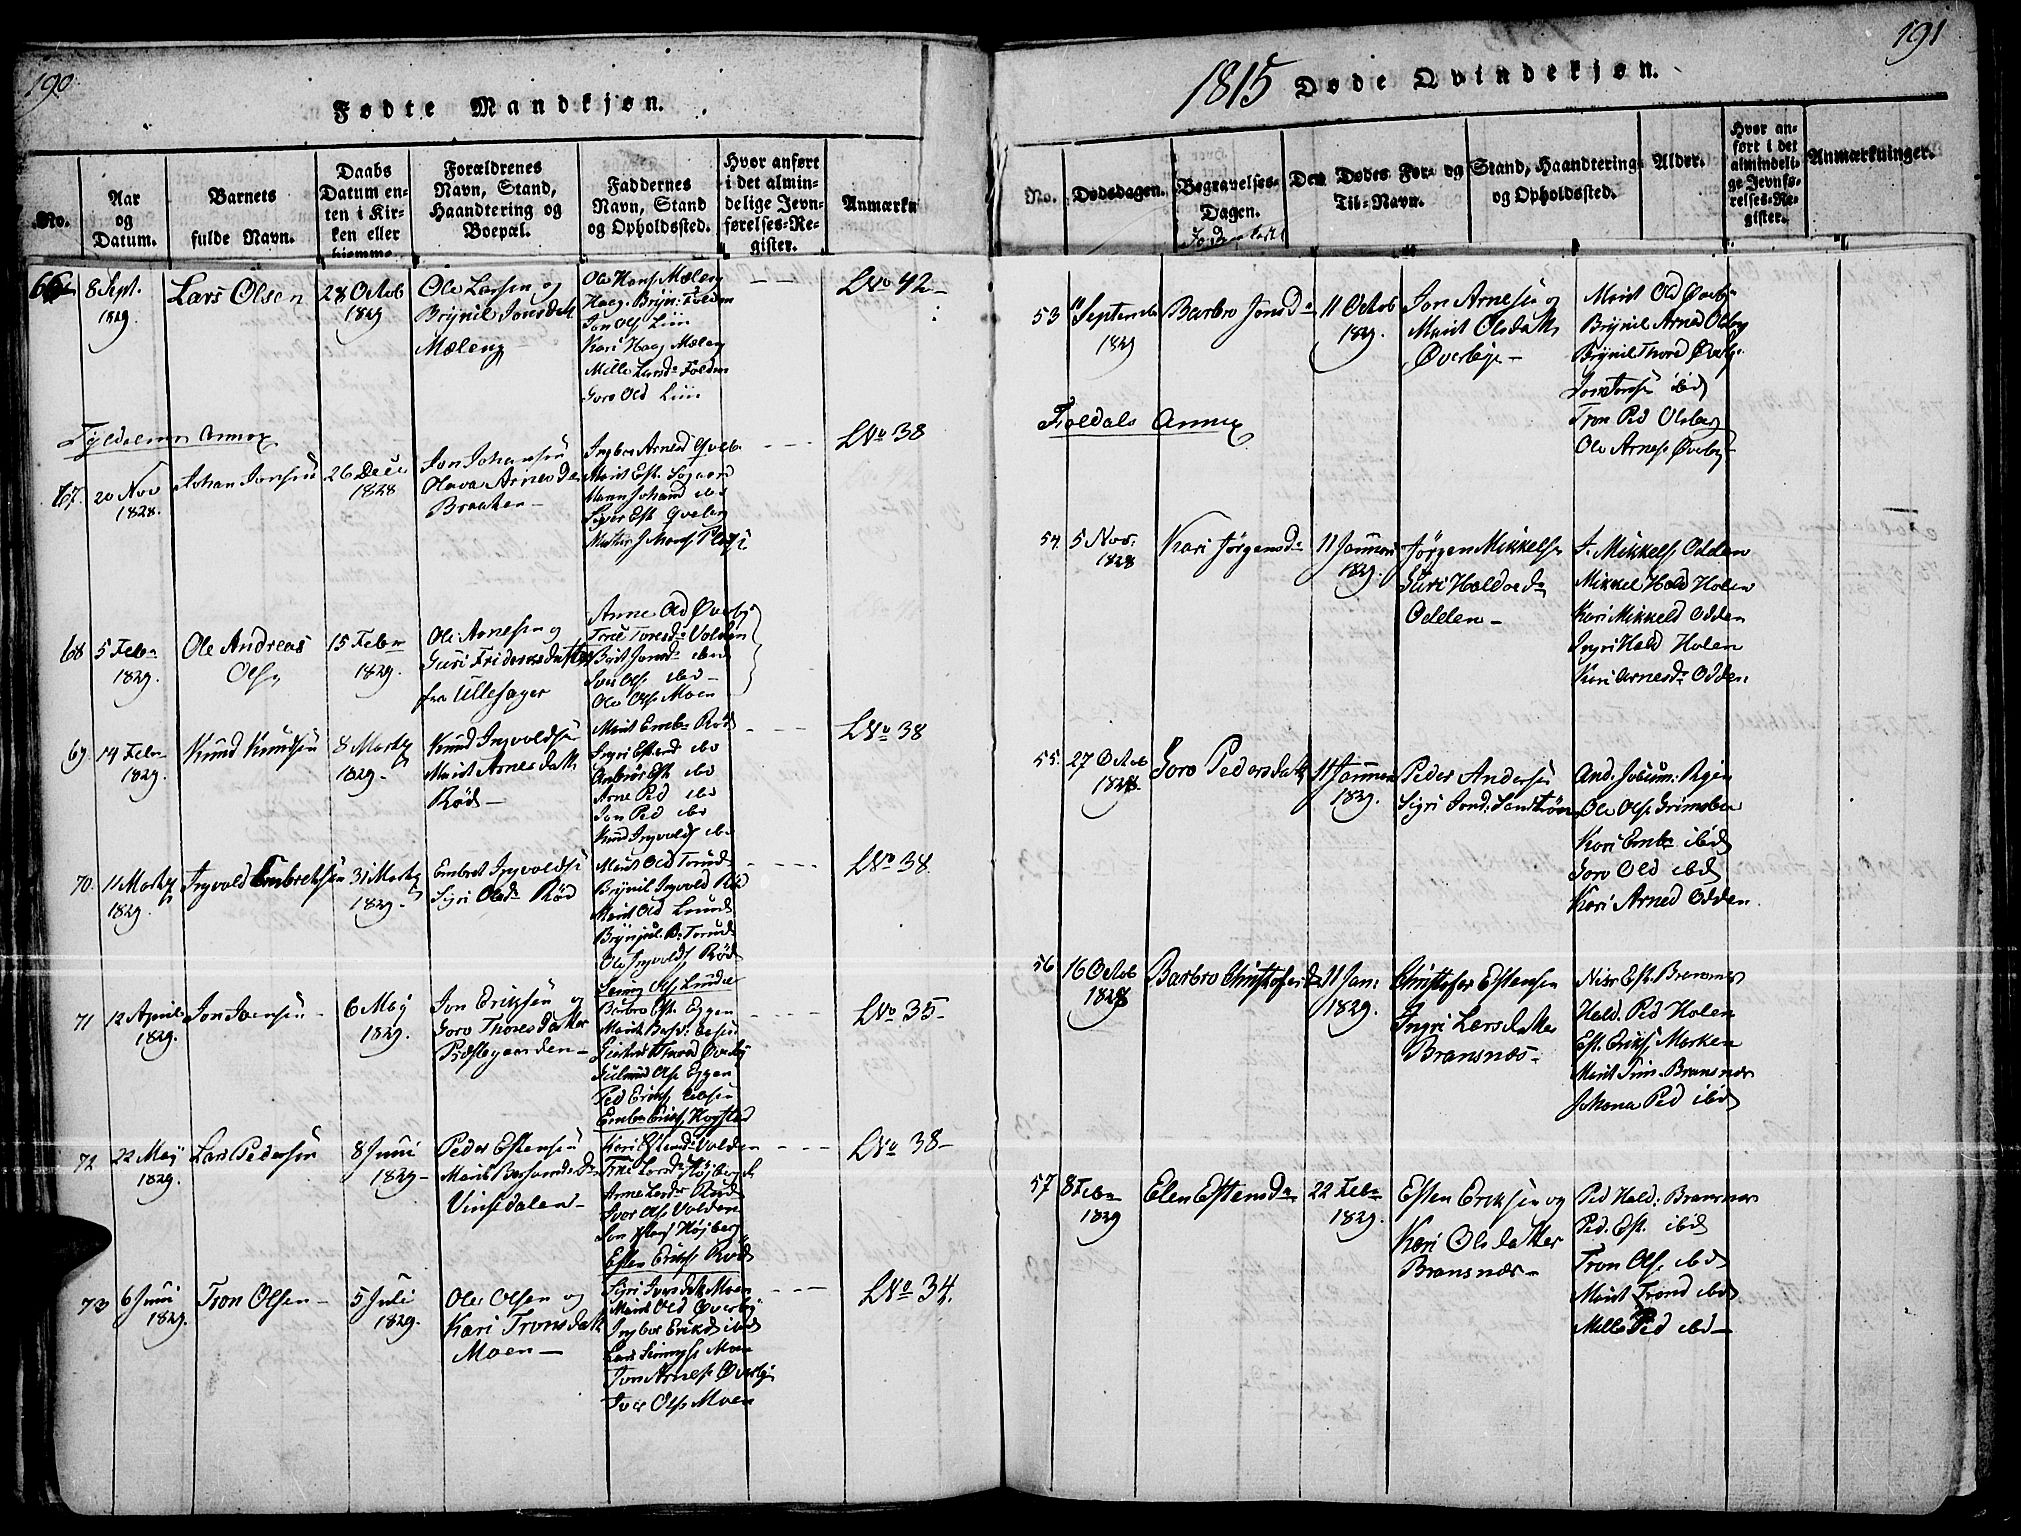 190.
Fødte Mandkjøn.
No.
Aar og Datum.
Barnets fulde Navn.
Daabs Datum enten i Kirken eller hjemme.
Forældrenes Navn, Stand, Haandtering og Boepæl.
Faddernes Navn, Stand og Opholdssted.
Hvor anført i det almindelige Jevnførelses-Register.
Anmærkn
66
8 Sept. 1829
Lars Olsen
28 Octob 1829
Ole Larsen og
Brynil Jonsdatt
Mæleng
Ole Hans Mæleng
Haag. Bryn: Folden
Jon Ols Liin
Kari Haag Mæleng
Mille Larsd: Folden
Goro Old Liin
LNo 42-
Tyldalens Annex
67.
20 Nov 1828.
Johan Jonsen
26 Dece 1828
Jon Johansen
Olava Arnesda
Braaten-
Ingbor Arnesd Qveb
Marit Est. Søgaard
Maren Johand ibd
Siver Est Qveberg
LNo 38
68
5 Febr 1829.
Ole Andreas Olsen
15 Febr 1829.
Ole Arnesen og
Guri Fridericsdatter
fra Ullesager
Anne Old Øverby
Trine Toresd: Volden
Berit Jonsd: ibid
Iver Ols ibid-
Ole Ols Moen
69.
14 Febr 1829.
Knud Knudsen
8 Marty 1829.
Knud Ingvoldsen
Marit Arnesdatt
Rød-
Marit Embr Rød
Sigri Estend ibd
Embrer Est ibd
Arne Ped ibd
Jon Ped ibd
Knud Ingvolds ibd
LNo 38
70.
11 Marty 1829.
Ingvold Embretsen
31 Marty 1829.
Embret Ingvoldsen
Sigri Olsd: Rød
Marit Old Torud
Brynil Ingvold Rød
Marit Old Lund
Brynjul. B: Torud
Ole Ingvolds Rød
LNo 38.
71
12 April 1829.
Jon Jonsen-
6 May 1829.
Jon Eriksen og
Goro Thoresdatter
Præstegaarden-
Barbro Est. Eggen
Gudmund Ols Eggen
Embr Eriks Hogstad
LNo 35-
72
22 May 1829.
Lars Pedersen
8 Juni 1829-
Peder Estensen
Marit Baersmdsd
Vinsedalen-
Arne Larsd: Rød
Iver Ols Volden
Esten Eriks Rød
LNo 38-
73
6 Juni 1829.
Tron Olsen-
5 Juli 1829.
Ole Olsen og
Kari Tronsdatt
Moen-
Sigri Iversdatt Moen
Marit Old Øverby
Ingbor Eriksd ibid
Jon Arnes Øverby
Iver Ols Moen
LNo 34.
191
1815 Døde Qvindekjøn.
No.
Dødsdagen.
Begravelses-Dagen.
Den Dødes For- og Til-Navn.
Stand, Haandtering og Opholdssted.
Alder.
Hvor anført i det almindelige Jevnførelses-Register.
Anmærkninger.
53
11 Septembr 1829
Barbro Jonsd:
11 Octob 1829.
Jon Arnesen og
Marit Olsdatt
Øverbye-
Marit Old Øverby
Brynil Arned Olsberg
Brynil Thord Øverby
Jon Jonsen ibid
Tron Ped Olsberg
Ole Arnes Øverby
Foldals Annex
54.
5 Nov. 1828
Kari Jørgensd:
11 Januari 1829.
Jørgen Mikkelsen
Guri Haldorsd:
Odden-
J. Mikkels Odden
Mikkel Hald Holen
Kari Mikkeld Odden
Ingri Hald Holen
Kari Arnesd: Odden
55.
27 Octob 1828.
Goro Pedersdatt
11 Januari 1829.
Peder Andersen
Sigri Jonsd: Sandtrøen
Ole Ols Grimsbu
Kari Emb: ibid
Goro Old ibid
Kari Arned Odden
56
16 Octob 1828
Barbro Christofersd
11 Jan: 1829.
Christofer Estensen
Ingri Larsdatter
Bransnæs-
Hald. Ped Holen
Est. Eriks Morken
Marit Sim. Bransnæs
Johana Ped ibid
57
8 Febr 1829
Elen Estensd:
22 Febr 1829.
Esten Eriksen og
Kari Olsdatter
Bransnæs-
Ped Hald: Bransnæs
Ped. Est. ibid
Tron Ols ibid
Marit Trond ibid
Mille Ped ibd-